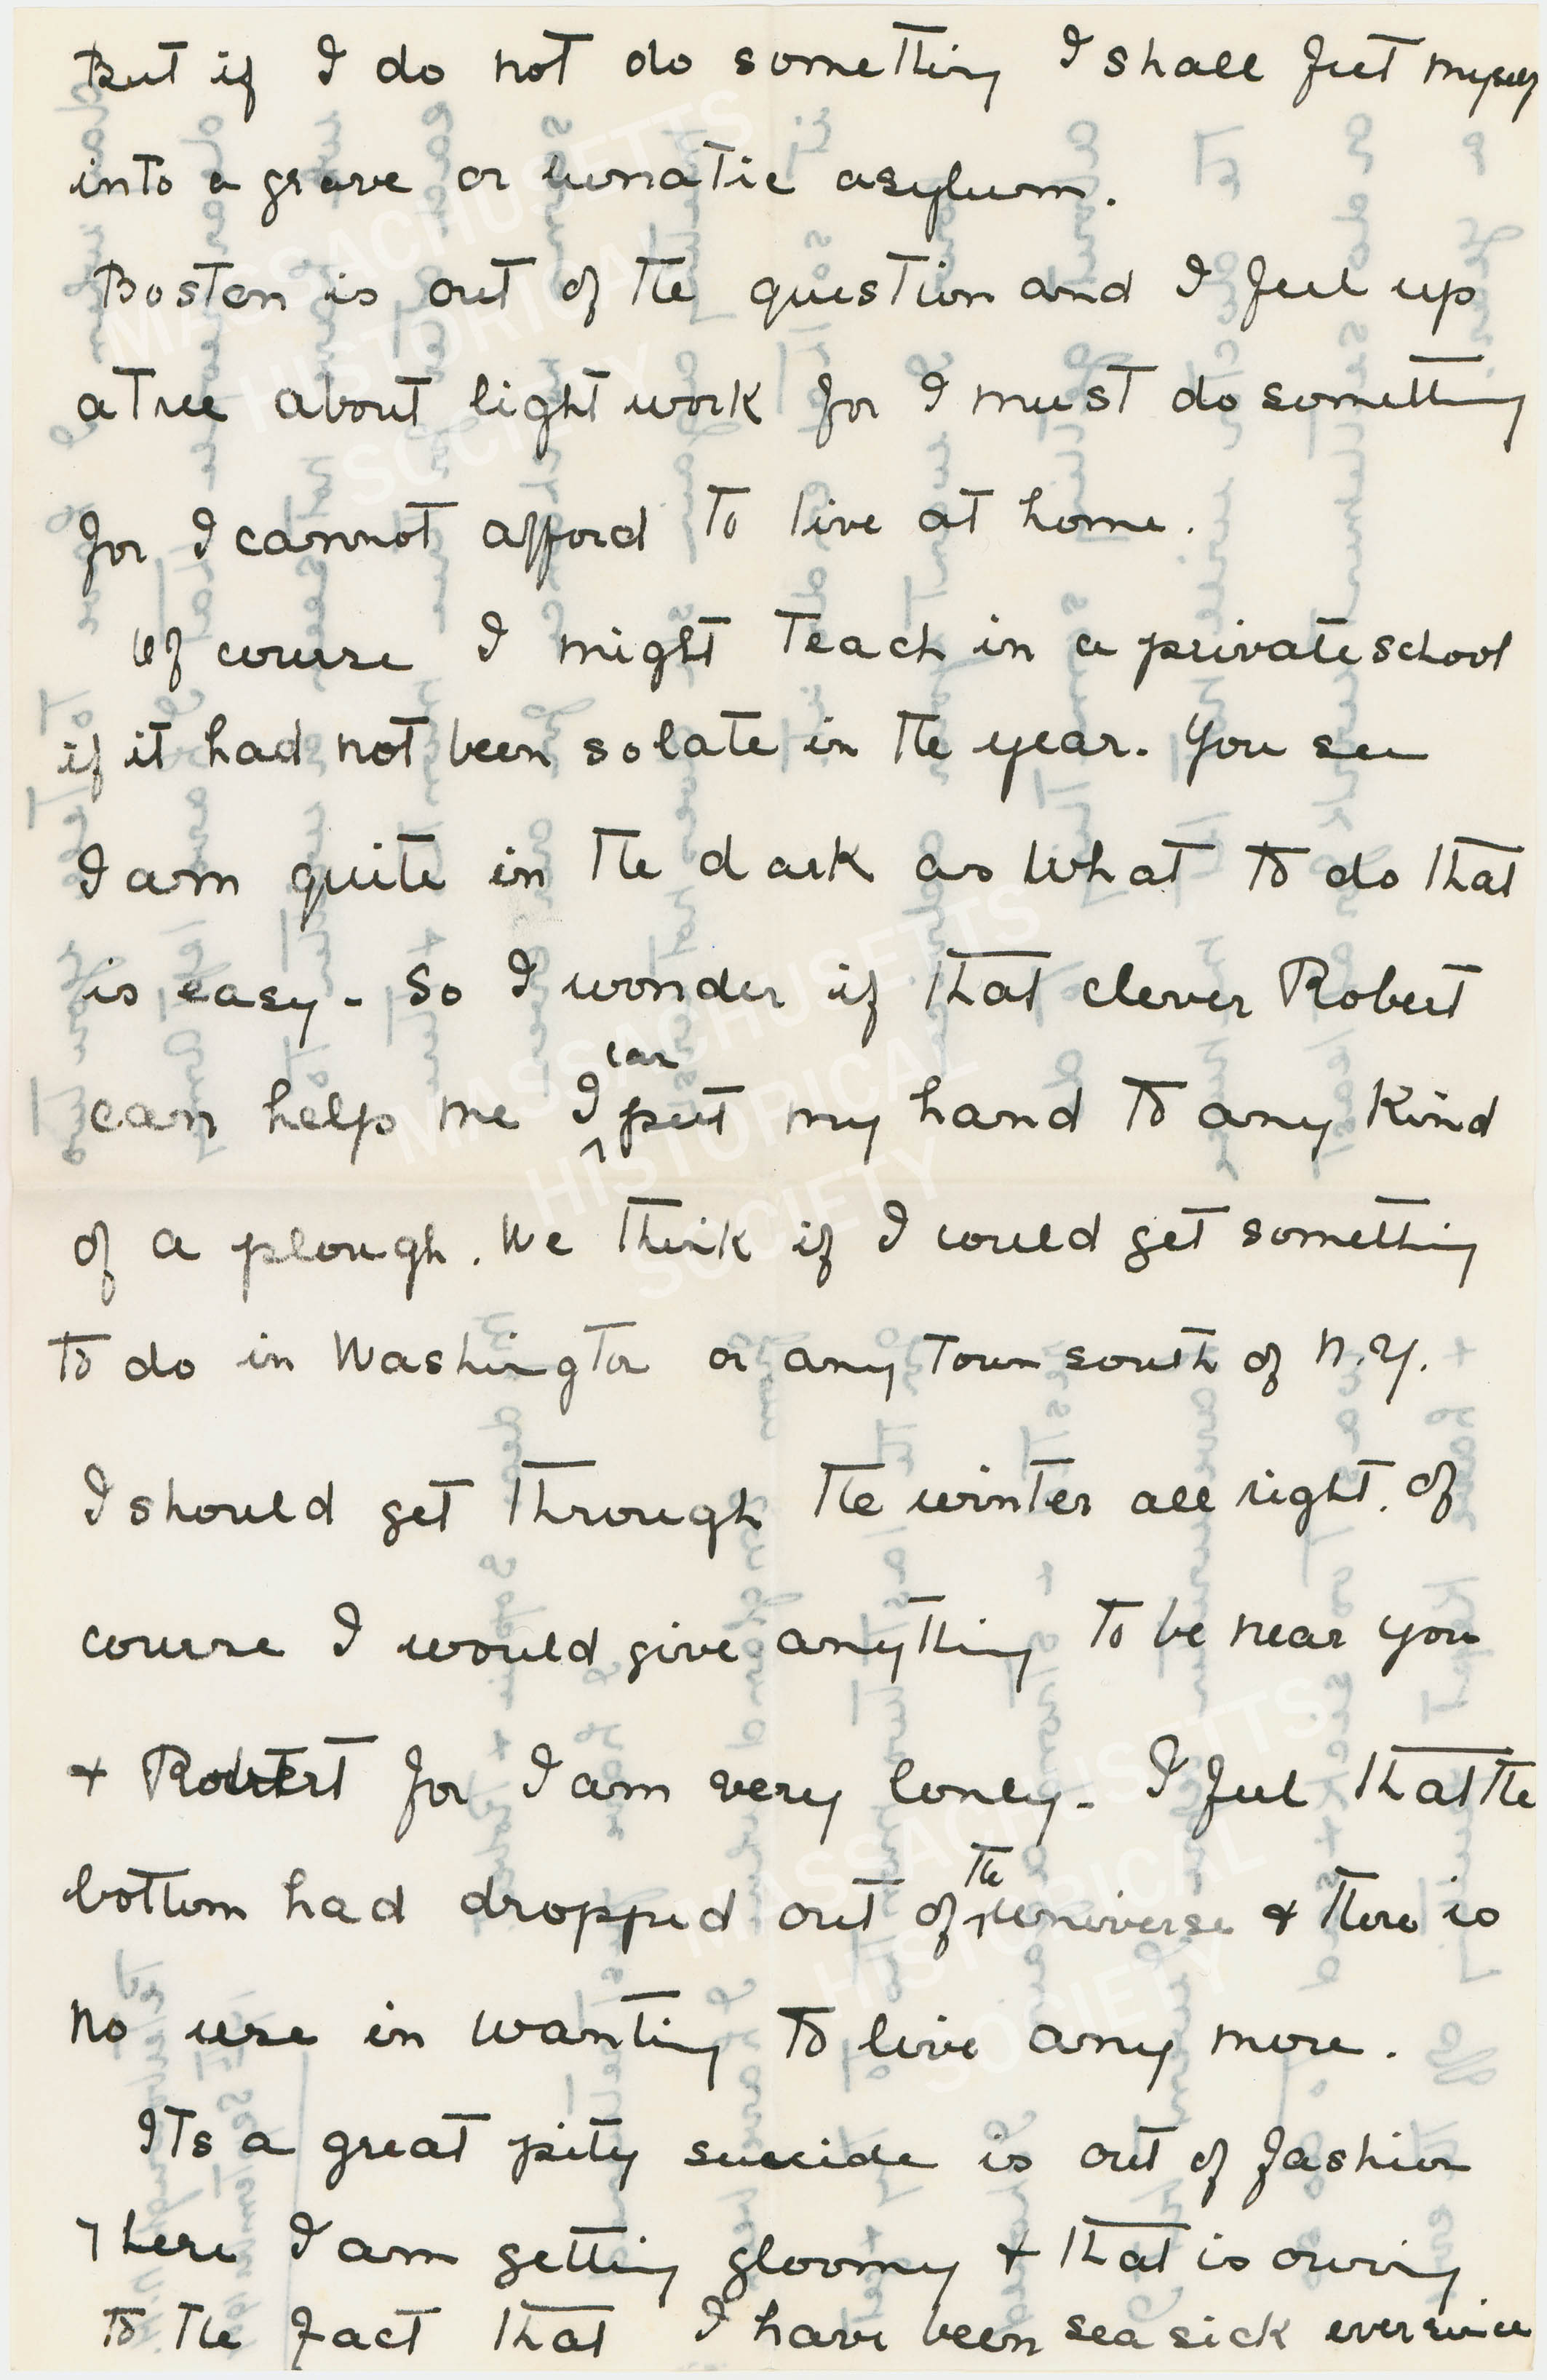 But if I do not do something I shall fret myself
into a grave or lunatic asylum.
Boston is out of the question and I feel up
a tree about light work for I must do something
for I cannot afford to live at home.
Of course I might teach in a private school
if it had not been so late in the year. You see
I am quite in the dark as what to do that
is easy - So I wonder if that clever Robert
can help me I can put my hand to any kind
of a plough. We think if I could get something
to do in Washington or any town south of N.Y.
I should get through the winter all right. Of
course I would give anything to be near you
+ Robert for I am very lonely - I feel that the
bottom had dropped out of the universe + there is
no use in wanting to live any more.
Its a great pity suicide is out of fashion
There I am getting gloomy + that is owing
to the fact that I have been sea sick ever since
MASSACHUSETTS
HISTORICAL
SOCIETY
MASSACHUSETTS
HISTORICAL
SOCIETY
MASSACHUSETTS
HISTORICAL
SOCIETY